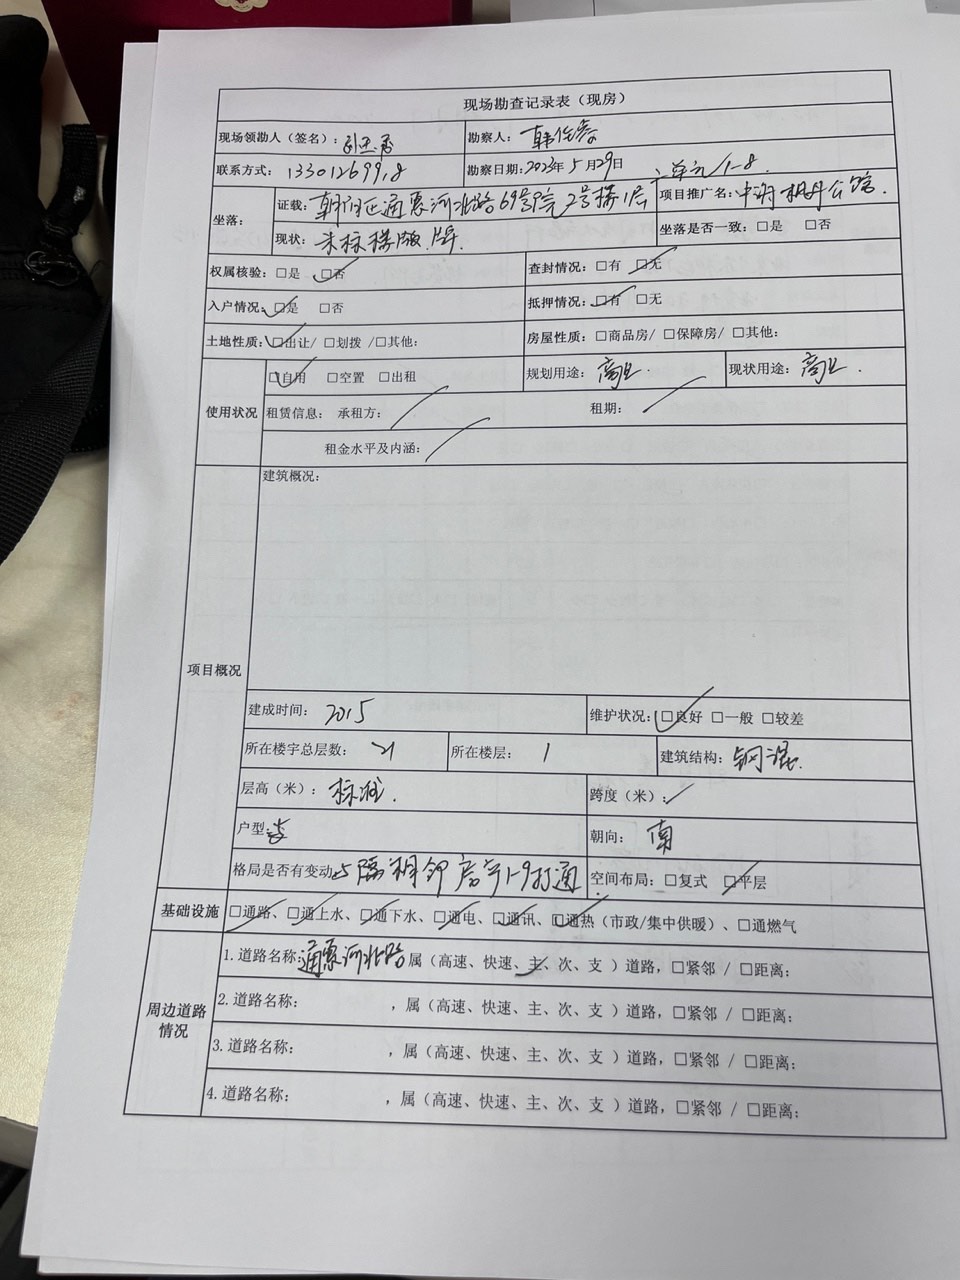 现场勘查记录表（现房）
现场领勘人（签名）： 勘察人：韩
联系方式：13301269918 勘察日期：2023年5月29日
坐落： 证载：朝阳区通惠河北路69号院2号楼1层二单元1-8 项目推广名：中湖枫丹公馆.
现状：未标楼版.牌. 坐落是否一致：□是 □否
权属核验：□是 ☑否 查封情况：□有 ☑无
入户情况：☑是 □否 抵押情况：☑有 □无
土地性质：☑出让/ □划拨 /□其他： 房屋性质：□商品房/ □保障房/ □其他：
使用状况 ☑自用 □空置 □出租 规划用途：商业. 现状用途：商业.
租赁信息： 承租方：/ 租期：/
租金水平及内涵：/
项目概况 建筑概况：
建成时间：2015 维护状况：☑良好 □一般 □较差
所在楼宇总层数：21 所在楼层：1 建筑结构：钢混.
层高（米）：标准. 跨度（米）：/
户型： 朝向：南
格局是否有变动：与隔相邻房号1-9打通 空间布局：□复式 ☑平层
基础设施 ☑通路、☑通上水、☑通下水、☑通电、☑通讯、☑通热（市政/集中供暖）、□通燃气
周边道路情况 1.道路名称：通惠河北路属（高速、快速、主、次、支 ）道路，□紧邻 / □距离：
2.道路名称： ，属（高速、快速、主、次、支 ）道路，□紧邻 / □距离：
3.道路名称： ，属（高速、快速、主、次、支 ）道路，□紧邻 / □距离：
4.道路名称： ，属（高速、快速、主、次、支 ）道路，□紧邻 / □距离：